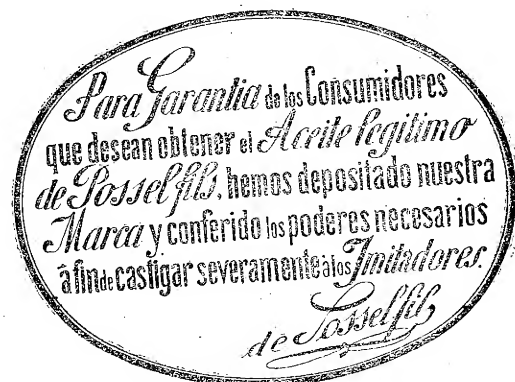 Para Garantia de los Consumidores
que desean obtener el Aceite legitimo
de Possel fils, hemos depositado nuestra
Marca y conferido los poderes necesarios
â fin de castigar severamente à los Imitadores.
de Possel fils